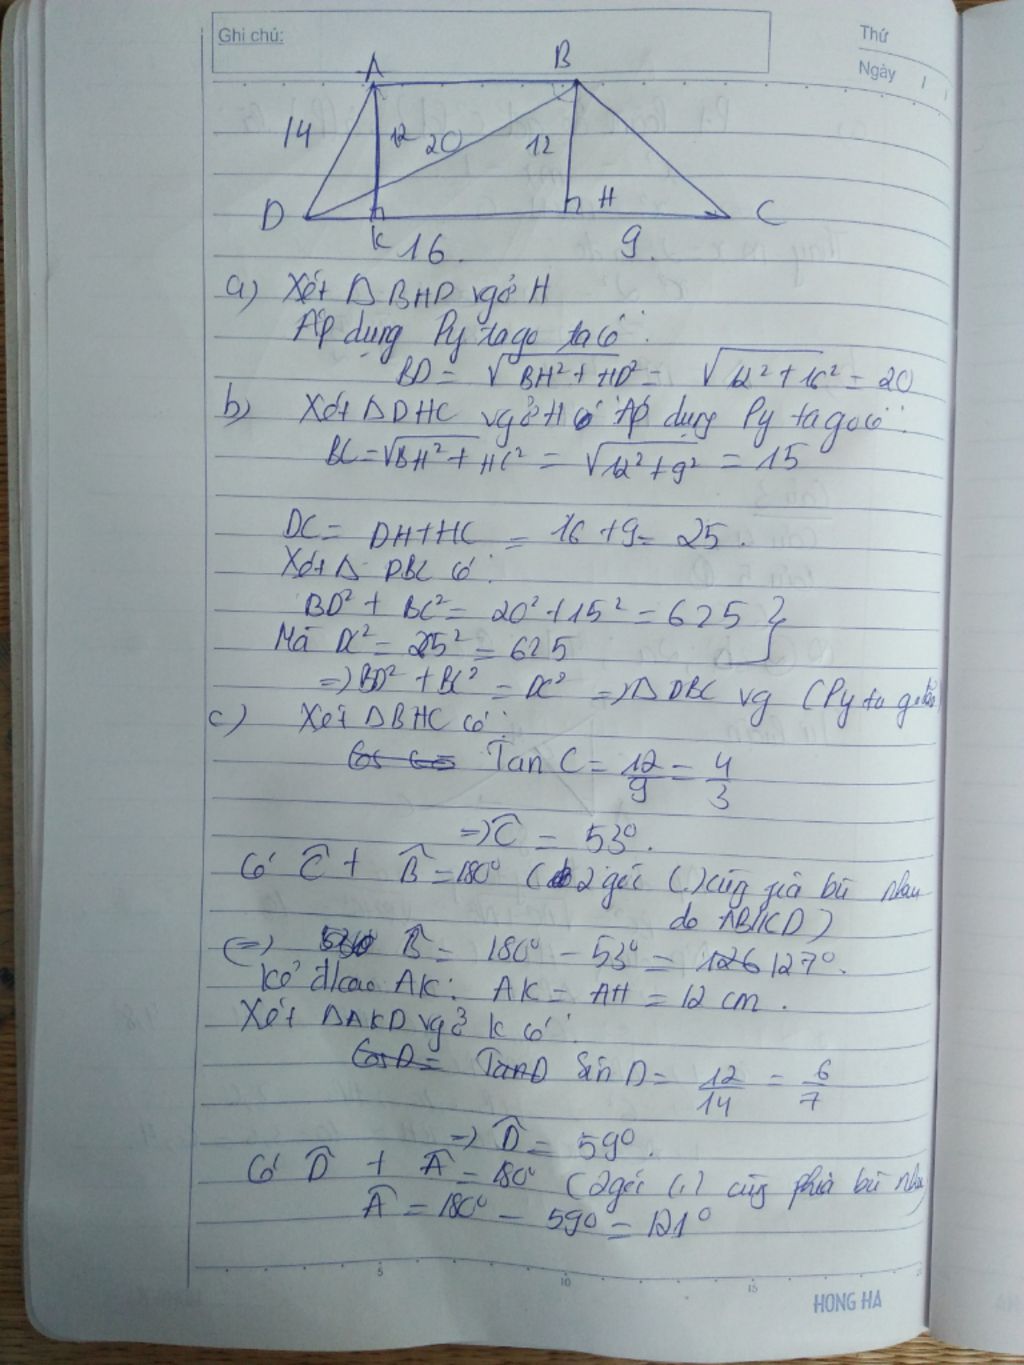 Ghi chú:
Thứ
Ngày
A
B
14
12
20
12
D
K
H
C
16
9
a) Xét Δ BHD vg ở H
Áp dụng Py ta go ta có:
BD = √BH² + HD² = √12² + 16² = 20
b) Xét Δ DHC vg ở H có Áp dụng Py ta go có:
BC = √BH² + HC² = √12² + 9² = 15
DC = DH + HC = 16 + 9 = 25.
Xét Δ DBC có:
BD² + BC² = 20² + 15² = 625 }
Mà DC² = 25² = 625
=> BD² + BC² = DC² => Δ DBC vg (Py ta go đảo)
c) Xét Δ BHC có:
Tan C = 12/9 = 4/3
=> Ĉ = 53°.
Có Ĉ + B̂ = 180° (2 góc (.) cùng phía bù nhau
do AB//CD)
(=) B̂ = 180° - 53° = 127°.
Kẻ đ/cao AK: AK = AH = 12 cm.
Xét Δ AKD vg ở K có:
Sin D = 12/14 = 6/7
=> D̂ = 59°.
Có D̂ + Â = 180° (2 góc (.) cùng phía bù nhau
Â = 180° - 59° = 121°
5
10
15
HONG HA